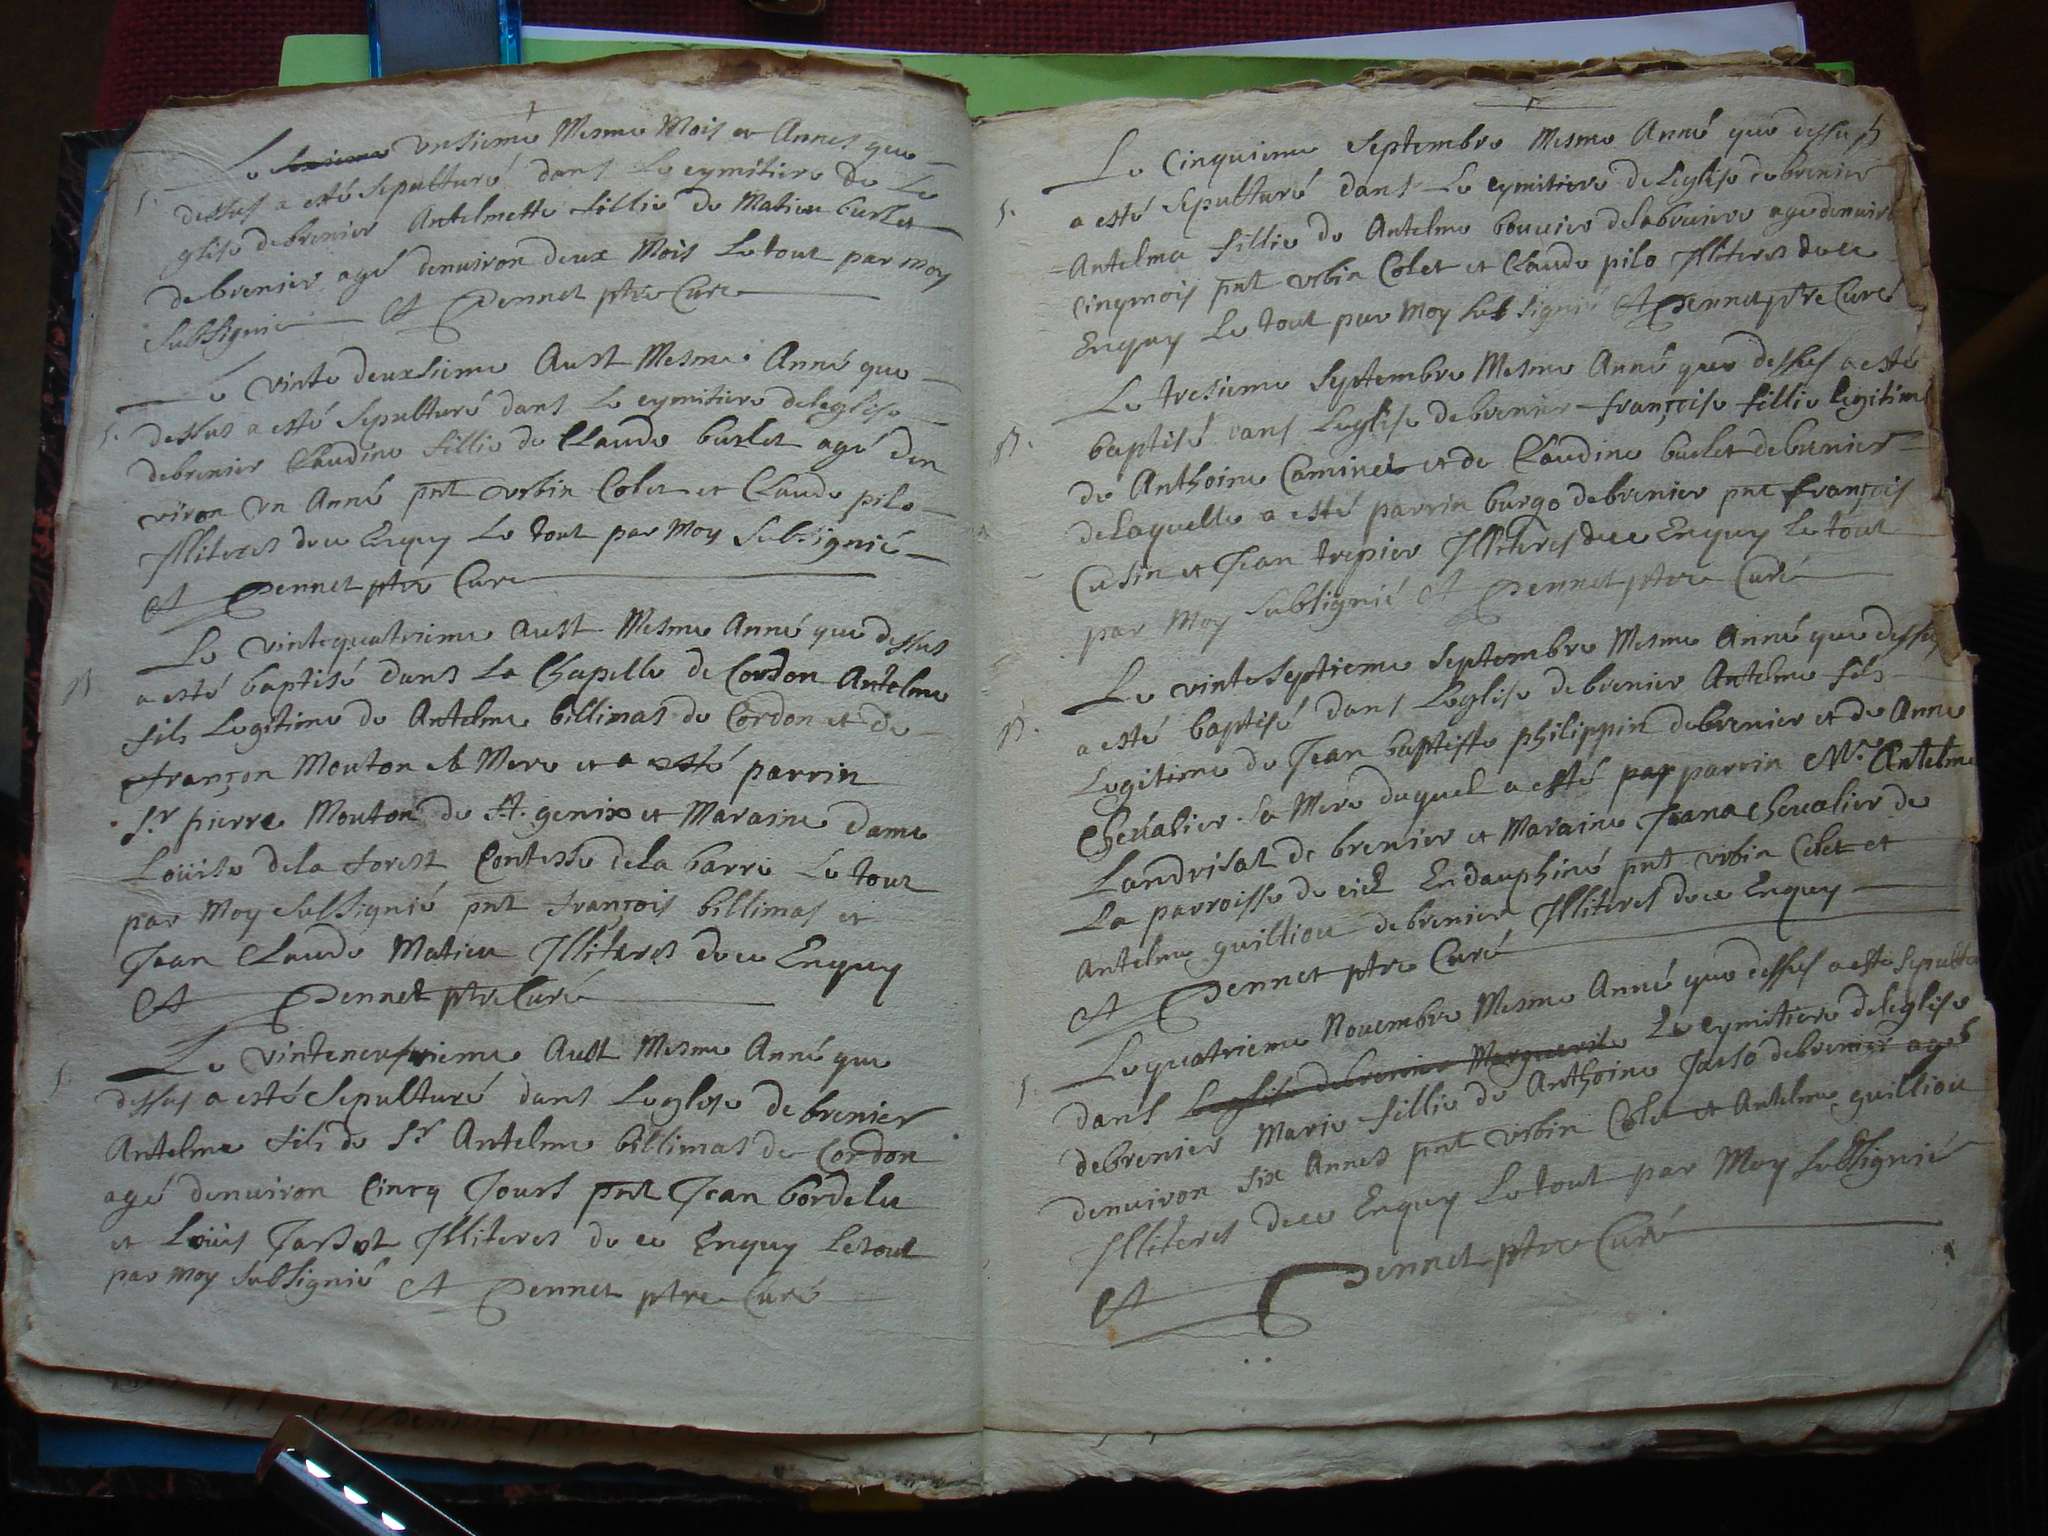 Le unsieme Mesme Mois et Annes que
S. dessus a esté sepulturé dans Le cymitiere de Le
glise debrenier Antelmette fillie de Matieu burlet
debrenier agé denuiron deux Mois Le tout par moy
subsignié Pennet ptre Curé
Le vinte deuxsieme Aust Mesme Anné que
S. dessus a esté sepulturé dans Le cymitiere deleglise
debrenier Claudine fillie de Claude burlet agé den
viron un Anné pnt urbin Colet et Claude pilo
Illiteres de ce Enquy Le tout par Moy subsignié
Pennet ptre Cure
Le vintequatrieme Aust Mesme Anné que dessus
B a esté baptisé dans La Chapelle de Cordon Antelme
fils Legitime de Antelme billimas de Cordon et de
françon Mouton sa Mere et a esté parrin
Sr pierre Mouton de St. genix et Maraine dame
Loüise dela forest Contesse dela barre Le tout
par Moy subsignié pnt françois billimas et
Jean Claude Matieu Illiteres de ce Enquy
Pennet ptre Curé
Le vinteneufvieme Aust Mesme Anné que
S. dessus a esté sepulturé dans Leglise debrenier
Antelme fils de Sr Antelme billimas de Cordon
agé denuiron Cincq Jours pnt Jean bordelu
et Loüis Illiteres de ce Enquy Le tout
par Moy subsignié Pennet ptre Curé
Le Cinquieme septembre Mesme Anné que dessus
S. a esté sepulturé dans Le cymitiere de Leglise debrenier
Antelma fillie de Antelme bouuier delabruiere age denuiro
cinqmois pnt urbin Colet et Claude pilo Illiteres de ce
Enquy Le tout par Moy subsignié Pennet ptre Curé
Le tresieme septembre Mesme Anné que dessus a esté
B. baptisé dans Leglise debrenier françoise fillie legitime
de Anthoine Caminet et de Claudine burlet debrenier
delaquelle a esté parrin burgo debrenier pnt françois
Cusin et Jean trepier Illiteres de ce Enquy Le tout
par Moy subsignié Pennet ptre Curé
Le vinteseptieme septembre Mesme Anné que dessus
B. a esté baptisé dans Leglise debrenier Antelme fils
Legitime de Jean baptiste philippin debrenier et de Anne
Cheualier sa Mere duquel a esté par parrin Mr. Antelme
Landrisat de brenier et Maraine Jeana Cheualier de
La parroisse de Endauphiné pnt urbin Colet et
Antelme guilliou debrenier Illiteres de ce Enquy
Pennet ptre Curé
Le quatrieme Nouembre Mesme Anné que dessus a esté sepultu
S. dans Leglise debrenier Marguerite Le cymitiere deleglise
debrenier Marie fillie de Anthoine debrenier agé
denuiron six Annes pnt urbin Colet et Antelme guilliou
Illiteres de ce Enquy Le tout par Moy subsignié
Pennet ptre Curé